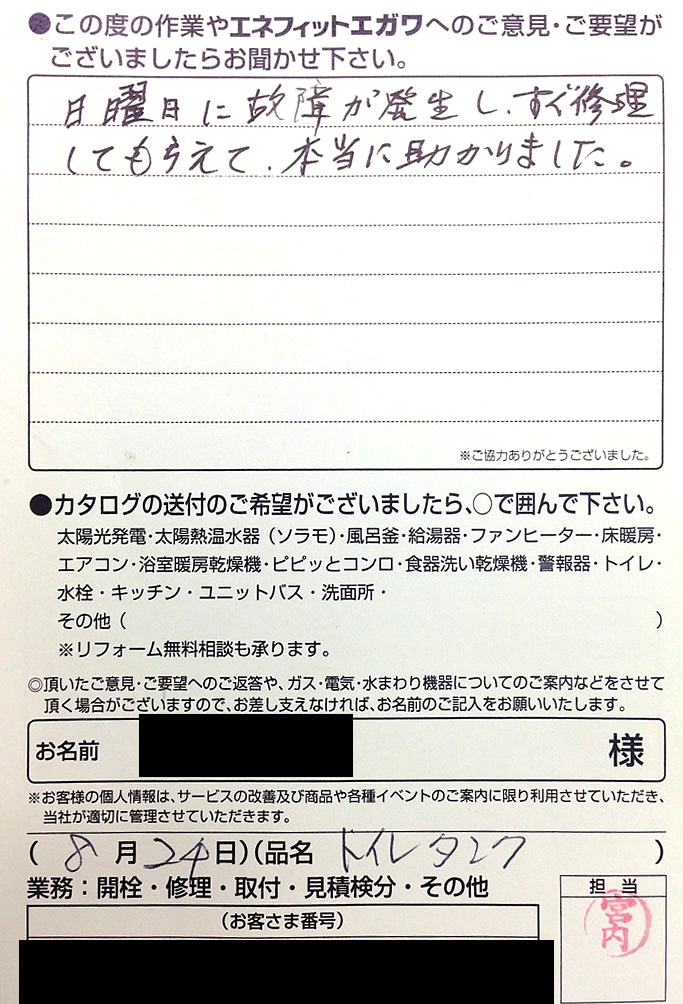 ●この度の作業やエネフィットエガワへのご意見・ご要望が
ございましたらお聞かせ下さい。
日曜日に故障が発生し、すぐ修理
してもらえて、本当に助かりました。
※ご協力ありがとうございました。
●カタログの送付のご希望がございましたら、○で囲んで下さい。
太陽光発電・太陽熱温水器（ソラモ）・風呂釜・給湯器・ファンヒーター・床暖房・
エアコン・浴室暖房乾燥機・ピピッとコンロ・食器洗い乾燥機・警報器・トイレ・
水栓・キッチン・ユニットバス・洗面所・
その他（ ）
※リフォーム無料相談も承ります。
◎頂いたご意見・ご要望へのご返答や、ガス・電気・水まわり機器についてのご案内などをさせて
頂く場合がございますので、お差し支えなければ、お名前のご記入をお願いいたします。
お名前 様
※お客様の個人情報は、サービスの改善及び商品や各種イベントのご案内に限り利用させていただき、
当社が適切に管理させていただきます。
（ 8月24日）（品名 トイレタンク ）
業務：開栓・修理・取付・見積検分・その他
担当
宮内
（お客さま番号）